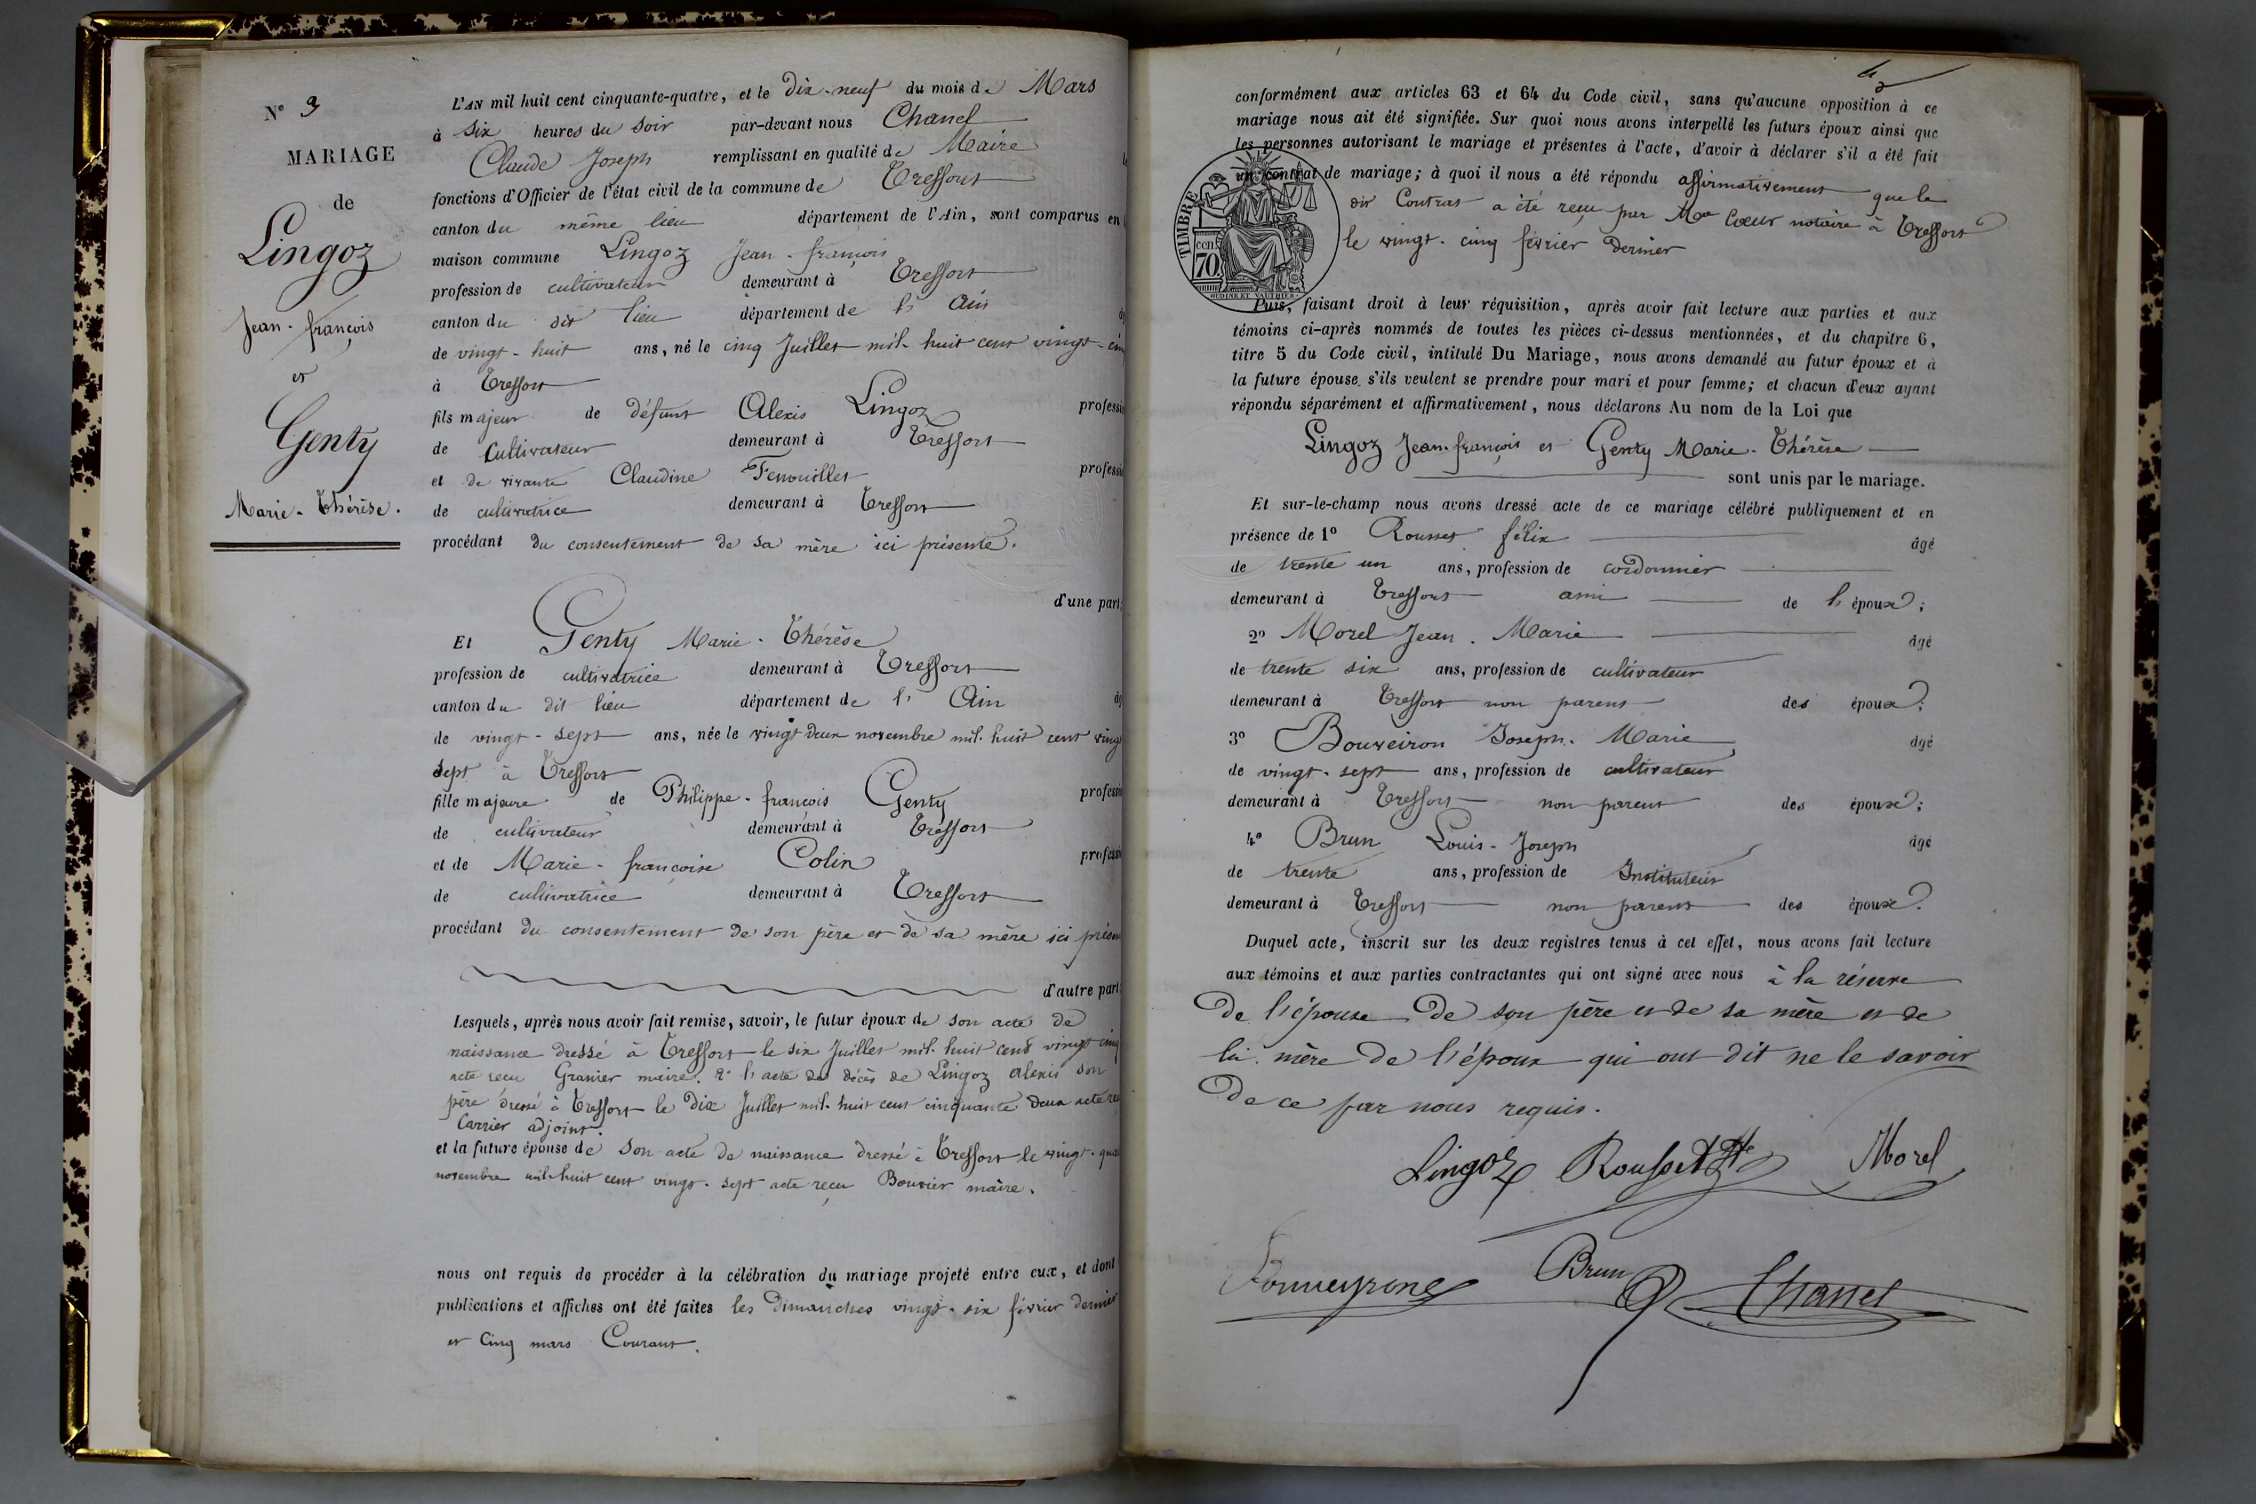 N° 3
MARIAGE
de
Lingoz
Jean-françois
et
Genty
Marie-Thérèse.
L'AN mil huit cent cinquante-quatre, et le dix-neuf du mois de Mars
à six heures du soir par-devant nous Chanel
Claude Joseph remplissant en qualité de Maire
fonctions d'Officier de l'état civil de la commune de Treffort
canton du même lieu département de l'Ain, sont comparus en
maison commune Lingoz Jean-françois
profession de cultivateur demeurant à Treffort
canton du dit lieu département de l' Ain
de vingt-huit ans, né le cinq Juillet mil-huit cent vingt-cinq
à Treffort
fils majeur de défunt Alexis Lingoz professi
de Cultivateur demeurant à Treffort
et de vivante Claudine Fenouillet professi
de cultivatrice demeurant à Treffort
procédant du consentement de sa mère ici présente.
d'une part;
Et Genty Marie-Thérèse
profession de cultivatrice demeurant à Treffort
canton du dit lieu département de l' Ain
de vingt-sept ans, née le vingt deux novembre mil-huit cent vingt
sept à Treffort
fille majeure de Philippe-françois Genty professi
de cultivateur demeurant à Treffort
et de Marie-françoise Colin professi
de cultivatrice demeurant à Treffort
procédant du consentement de son père et de sa mère ici présen
d'autre part;
Lesquels, après nous avoir fait remise, savoir, le futur époux de son acte de
naissance dressé à Treffort le six Juillet mil-huit cent vingt cinq
acte reçu Granier maire. 2° l'acte de décès de Lingoz Alexis son
père dressé à Treffort le dix Juillet mil-huit cent cinquante deux acte reç
Carrier adjoint.
et la future épouse de son acte de naissance dressé à Treffort le vingt-qua
novembre mil-huit cent vingt-sept acte reçu Bouvier maire.
nous ont requis de procéder à la célébration du mariage projeté entre eux, et dont
publications et affiches ont été faites les Dimanches vingt-six février dernier
et Cinq mars Courant.
conformément aux articles 63 et 64 du Code civil, sans qu'aucune opposition à ce
mariage nous ait été signifiée. Sur quoi nous avons interpellé les futurs époux ainsi que
les personnes autorisant le mariage et présentes à l'acte, d'avoir à déclarer s'il a été fait
un contrat de mariage; à quoi il nous a été répondu affirmativement que le
dit Contrat a été reçu par Me Cœur notaire à Treffort
le vingt-cinq février dernier
TIMBRE
cen.
70
OUDINE ET VAUTHIER
Puis, faisant droit à leur réquisition, après avoir fait lecture aux parties et aux
témoins ci-après nommés de toutes les pièces ci-dessus mentionnées, et du chapitre 6,
titre 5 du Code civil, intitulé Du Mariage, nous avons demandé au futur époux et à
la future épouse s'ils veulent se prendre pour mari et pour femme; et chacun d'eux ayant
répondu séparément et affirmativement, nous déclarons Au nom de la Loi que
Lingoz Jean-françois et Genty Marie-Thérèse
sont unis par le mariage.
Et sur-le-champ nous avons dressé acte de ce mariage célébré publiquement et en
présence de 1° Rousset félix âgé
de trente un ans, profession de cordonnier
demeurant à Treffort ami de l'époux;
2° Morel Jean-Marie âgé
de trente six ans, profession de cultivateur
demeurant à Treffort non parent des époux;
3° Bouveiron Joseph-Marie âgé
de vingt-sept ans, profession de cultivateur
demeurant à Treffort non parent des époux;
4° Brun Louis-Joseph âgé
de trente ans, profession de Instituteur
demeurant à Treffort non parent des époux.
Duquel acte, inscrit sur les deux registres tenus à cet effet, nous avons fait lecture
aux témoins et aux parties contractantes qui ont signé avec nous à la réserve
De l'épouse De son père et de sa mère et de
la mère de l'époux qui ont dit ne le savoir
De ce par nous requis.
Lingoz Rousset Morel
Bouveyron Brun Chanel